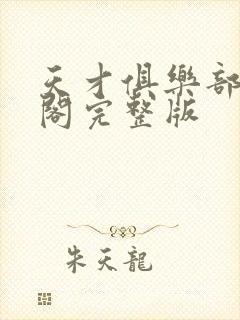 天才俱樂部
閣完整版
朱天龍